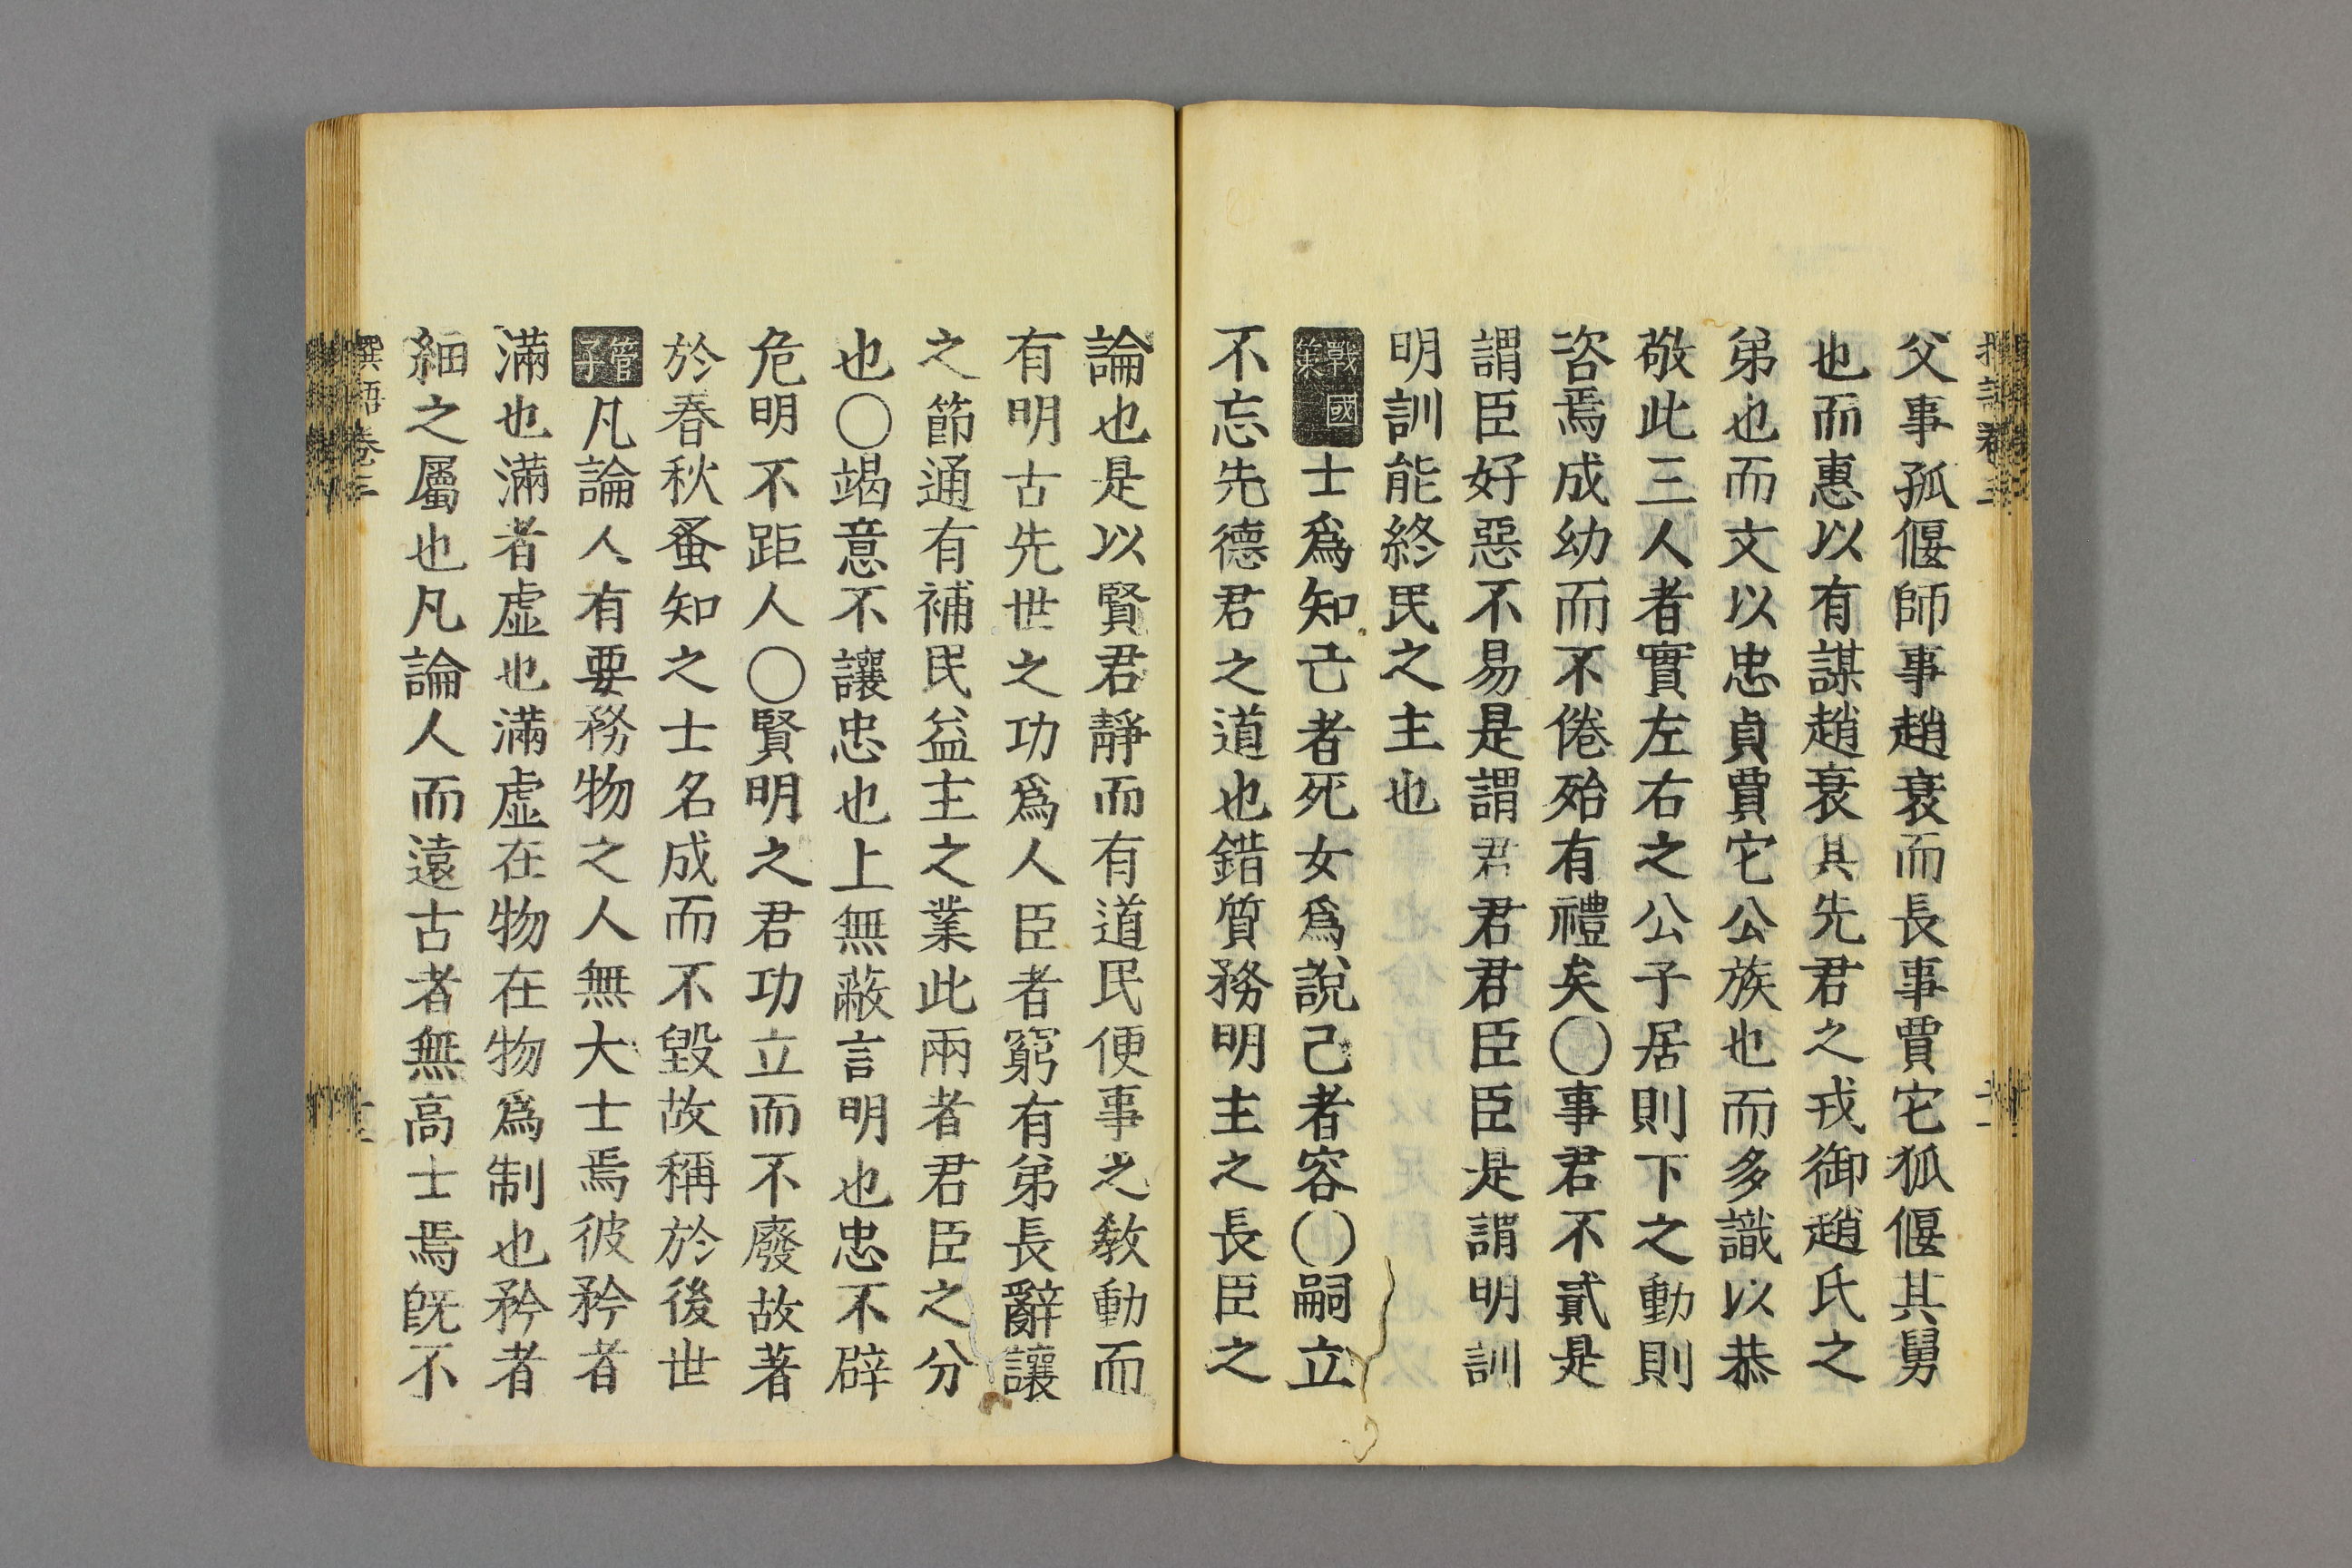 父事孤偃師事趙衰而長事賈它狐偃其舅
也而惠以有謀趙衰其先君之戎御趙氏之
弟也而文以忠貞賈它公族也而多識以恭
敬此三人者實左右之公子居則下之動則
咨焉成幼而不倦殆有禮矣〇事君不貳是
謂臣好惡不易是謂君君君臣臣是謂明訓
明訓能終民之主也
戰國策士爲知己者死女爲說己者容〇嗣立
不忘先德君之道也錯質務明主之長臣之
論也是以賢君靜而有道民便事之敎動而
有明古先世之功爲人臣者窮有弟長辭讓
之節通有補民益主之業此兩者君臣之分
也〇竭意不讓忠也上無蔽言明也忠不辟
危明不距人〇賢明之君功立而不廢故著
於春秋蚤知之士名成而不毀故稱於後世
管子凡論人有要務物之人無大士焉彼矜者
滿也滿者虛也滿虛在物在物爲制也矜者
細之屬也凡論人而遠古者無高士焉旣不
撰語卷三